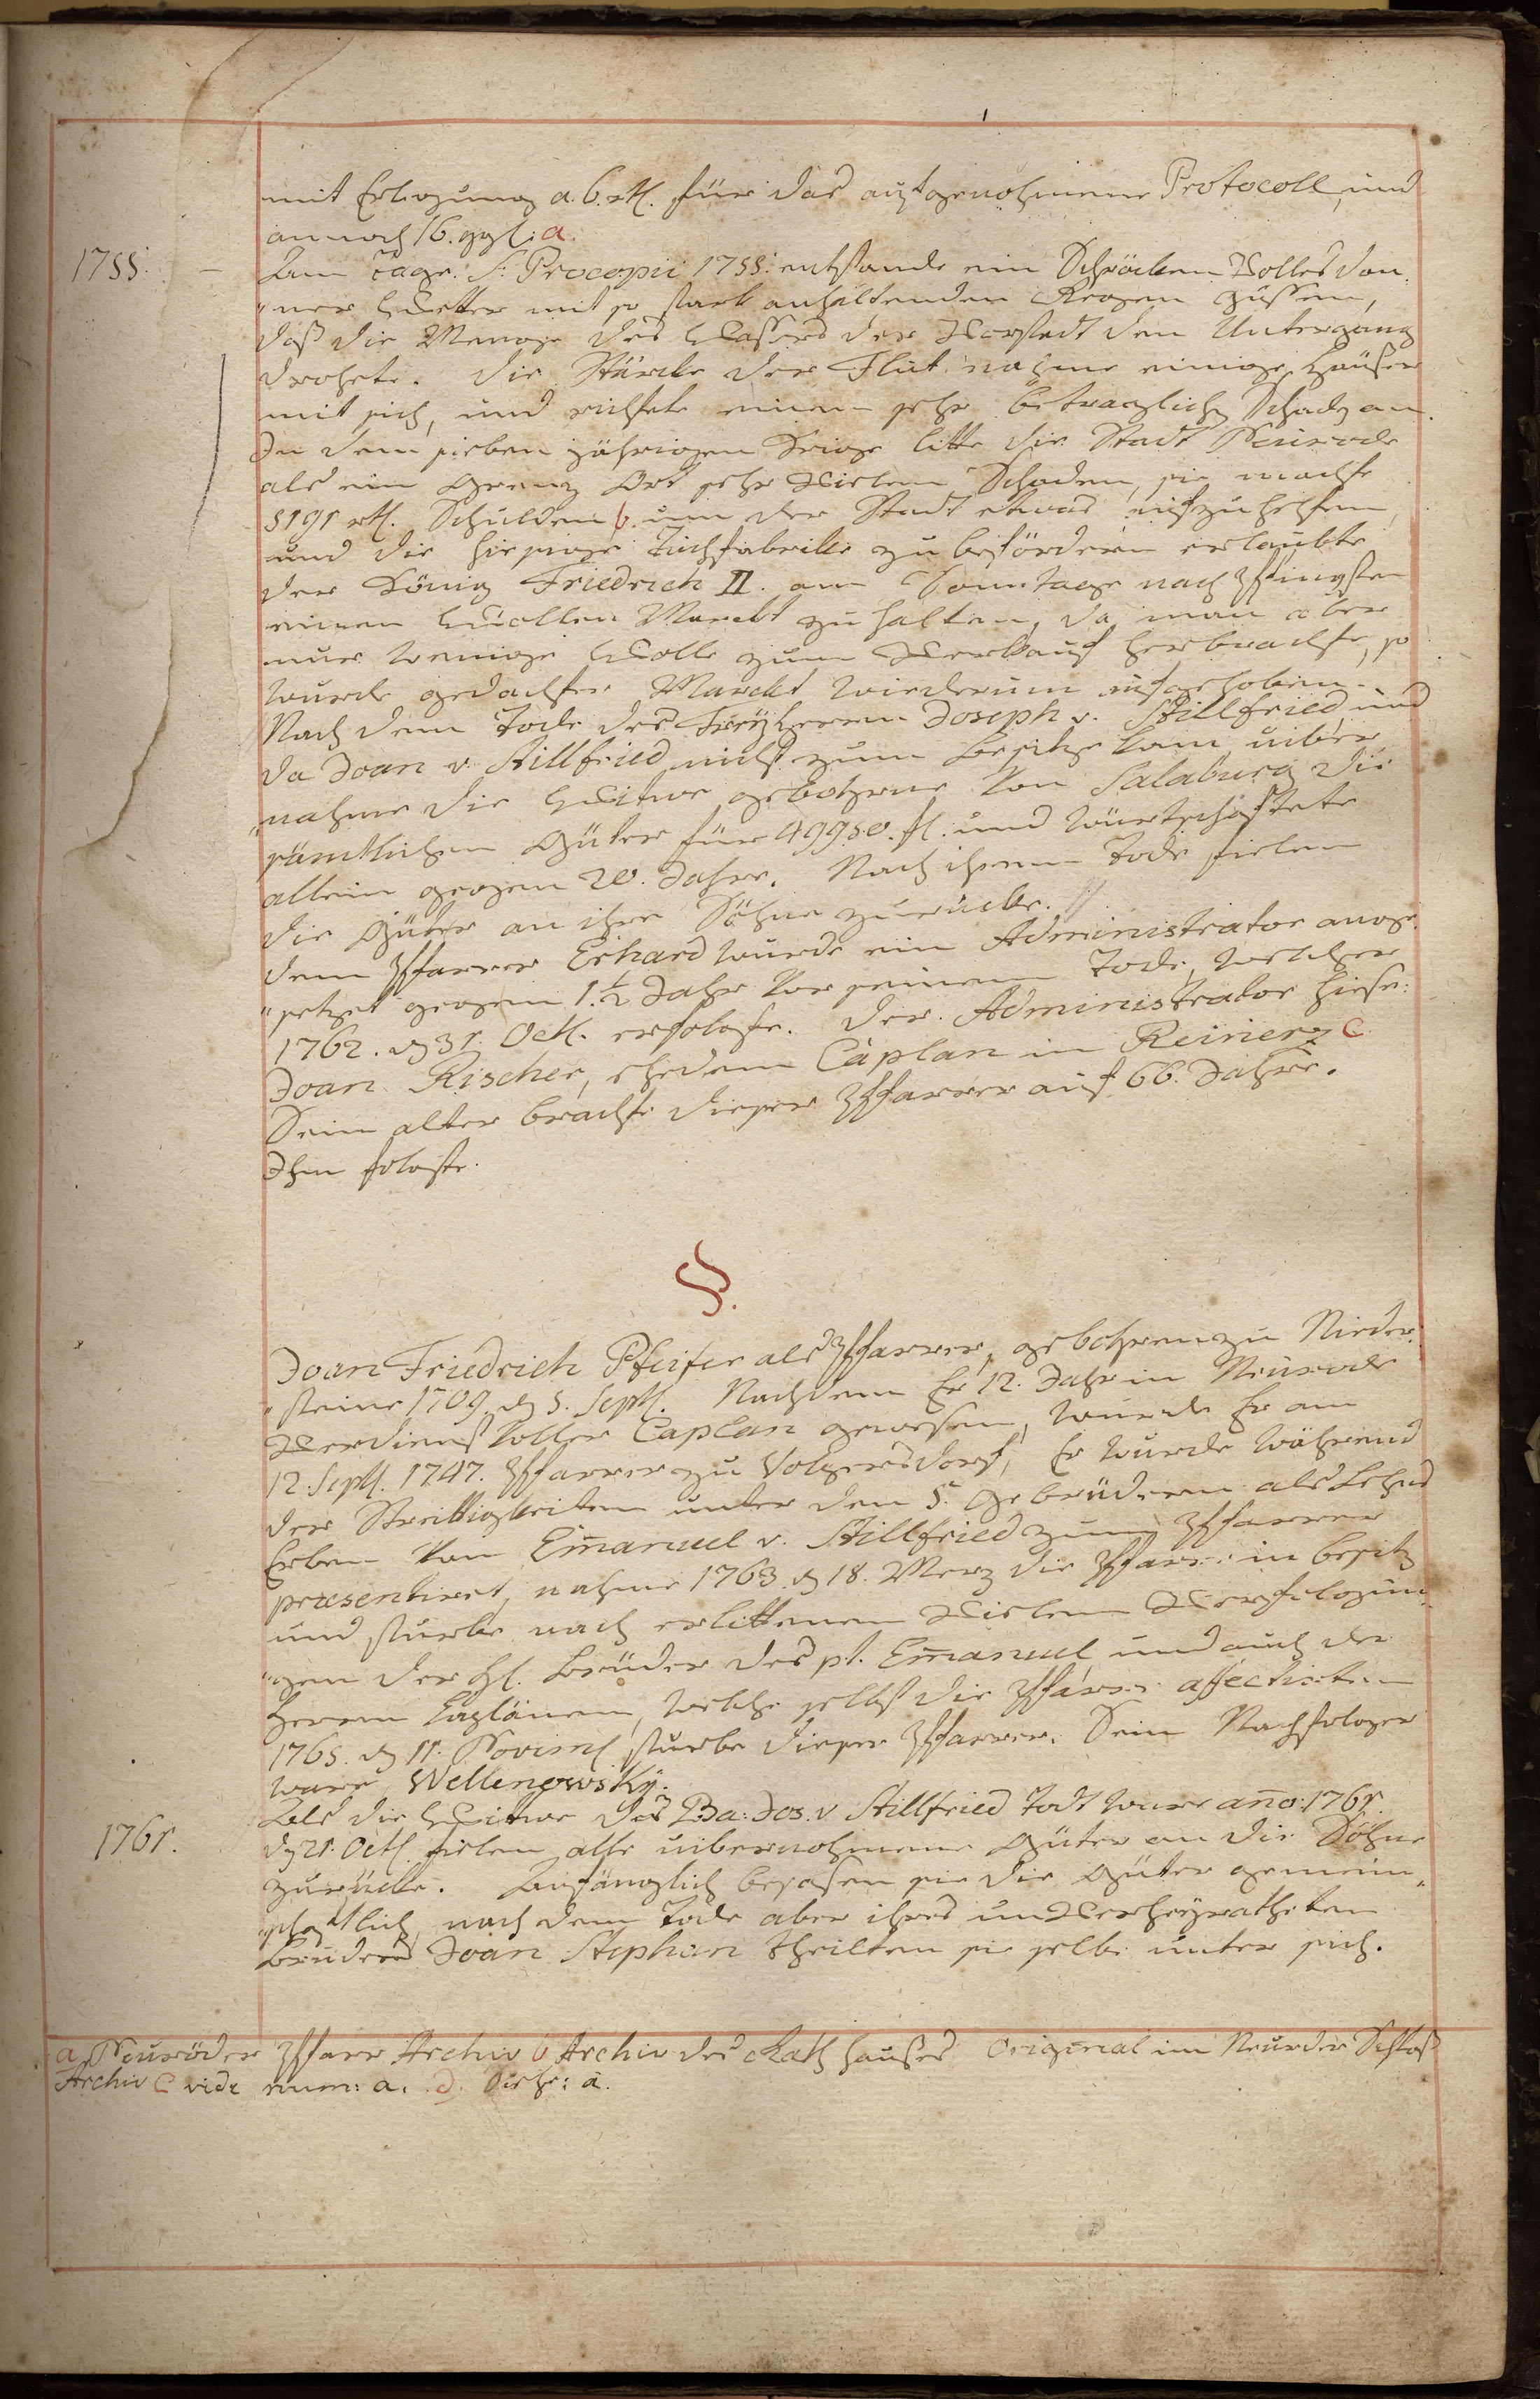 mit Erlegung a. 6. rtl. für das aufgenohmene Protocoll, und
annoch 16. ggl: a.
1755. Am Tage S: Procopii 1755: entstande ein Schröcken Volles don
"ner Wetter mit so stark anhaltenden Regen güssen,
daß die Menge des Wassers der Vorstadt den Untergang
drohete. Die Stärcke der Flut nahme einige Häuser
mit sich, und richtete einen sehr beträglichen Schaden an.
In dem sieben jährigen Krige litte die Stadt Neurode
als ein Grenz Ort sehr Vielen Schaden, sie machte
5191 rtl. Schulden b. um der Stadt etwas aufzuhelfen,
und die hiesige Tuchfabrike zu befördern erlaubte
der König Friedrich II. am Sonntage nach Pfingsten
einen Wollen Marckt zu halten, da man aber
nur wenige Wolle zum Verkauf herbrachte, so
wurde gedachter Marckt wiederum aufgehoben.
Nach dem Tode des Freyherrn Joseph v. Stillfried, und
da Joan v. Stillfried nicht zum Besitze kam, uiber
"nahme die Witwe gebohrne Von Salaburg die
sämtlichen Güter für 49950. fl. und würtschaftete
allein gegen 20. Jahre. Nach ihrem Tode fielen
die Güter an ihre Söhne zurücke.
Dem Pfarrer Erhard wurde ein Administrator ange
"setzet gegen 1.½ Jahr Vor seinem Tode, welcher
1762. d 31. Octb. erfolgte. Der Administrator hiese:
Joan Rischer, ehedem Caplan in Reinerz c
Sein alter brachte dieser Pfarrer auf 66. Jahre.
Ihm folgte.
§.
Joan Friedrich Pfeifer als Pfarrer, gebohren zu Nieder
"steine 1709. d 5. Septb. Nachdem Er 12. Jahr in Neurode
Verdienst Voller Caplan gewesen, wurde Er am
12. Septb. 1747. Pfarrer zu Volpersdorf, Er wurde während
der Streittigkeiten unter den 5. Gebrüdern als Lehns
Erben Von Em̄anuel v. Stillfried zum Pfarrer
præsentiret, nahme 1763 d 18. Merz die Pfarre in Besitz
und sturbe nach erlittenen Vielen Verfolgun
"gen der H. Brüder des pl. Em̄anuel und auch der
Herrn Caplänen, welche selbst die Pfarre affectirten
1765. d 11. Novemb sturbe dieser Pfarrer. Sein Nachfolger
ware Wellenowsky.
1761. Als die Witwe des Ba: Jos. v. Stillfried Todt ware an̄o: 1761.
d 21. Octb. fielen alle uibernohmene Güter an die Söhne
zurücke. Anfänglich besasen sie die Güter gemein
"schaftlich, nach dem Tode aber ihres unVerheyratheten
Bruders Joan Stephan theilten sie selbe unter sich.
a Neuröder Pfarr Archiv b Archiv des Rath Hauses Original im Neuroder Schloß
Archiv c vide num: a. d. Siehe: a.